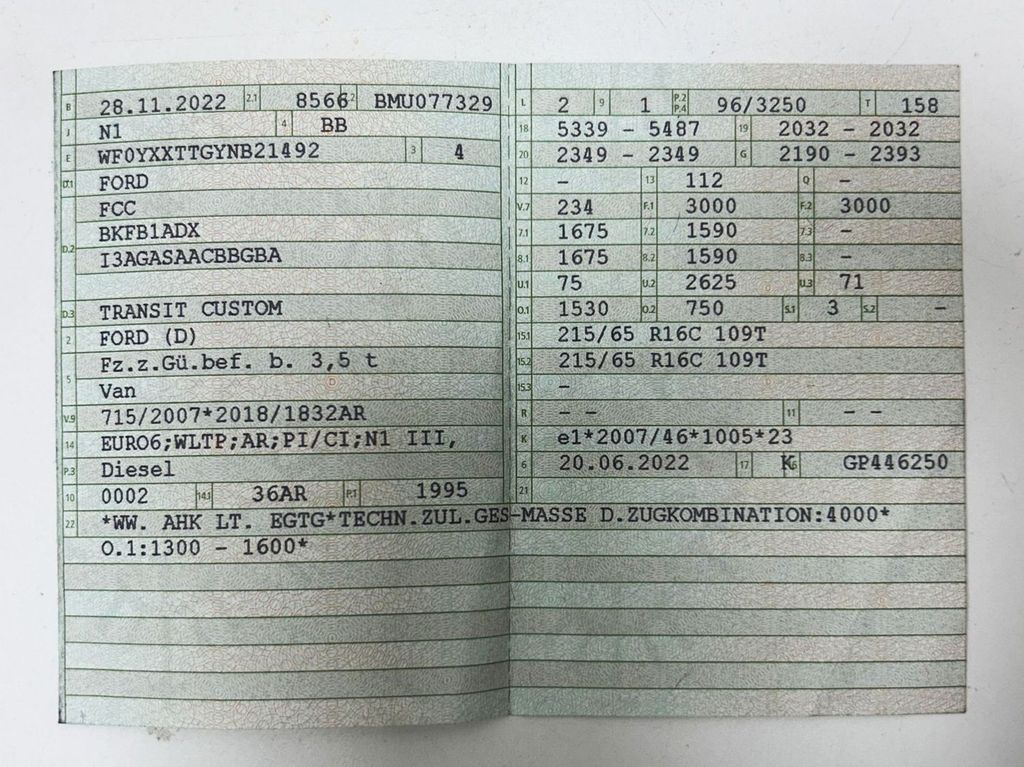 B 28.11.2022 2.1 8566 2.2 BMU077329
J N1 4 BB
E WF0YXXTTGYNB21492 3 4
D.1 FORD
D.2 FCC
BKFB1ADX
I3AGASAACBBGBA
D.3 TRANSIT CUSTOM
2 FORD (D)
5 Fz.z.Gü.bef. b. 3,5 t
Van
V.9 715/2007*2018/1832AR
14 EURO6;WLTP;AR;PI/CI;N1 III,
P.3 Diesel
10 0002 14.1 36AR P.1 1995
22 *WW. AHK LT. EGTG*TECHN.ZUL.GES-MASSE D.ZUGKOMBINATION:4000*
O.1:1300 - 1600*
L 2 9 1 P.2 P.4 96/3250 T 158
18 5339 - 5487 19 2032 - 2032
20 2349 - 2349 G 2190 - 2393
12 - 13 112 Q -
V.7 234 F.1 3000 F.2 3000
7.1 1675 7.2 1590 7.3 -
8.1 1675 8.2 1590 8.3 -
U.1 75 U.2 2625 U.3 71
O.1 1530 O.2 750 S.1 3 S.2 -
15.1 215/65 R16C 109T
15.2 215/65 R16C 109T
15.3 -
R - - 11 - -
K e1*2007/46*1005*23
6 20.06.2022 17 K 16 GP446250
21